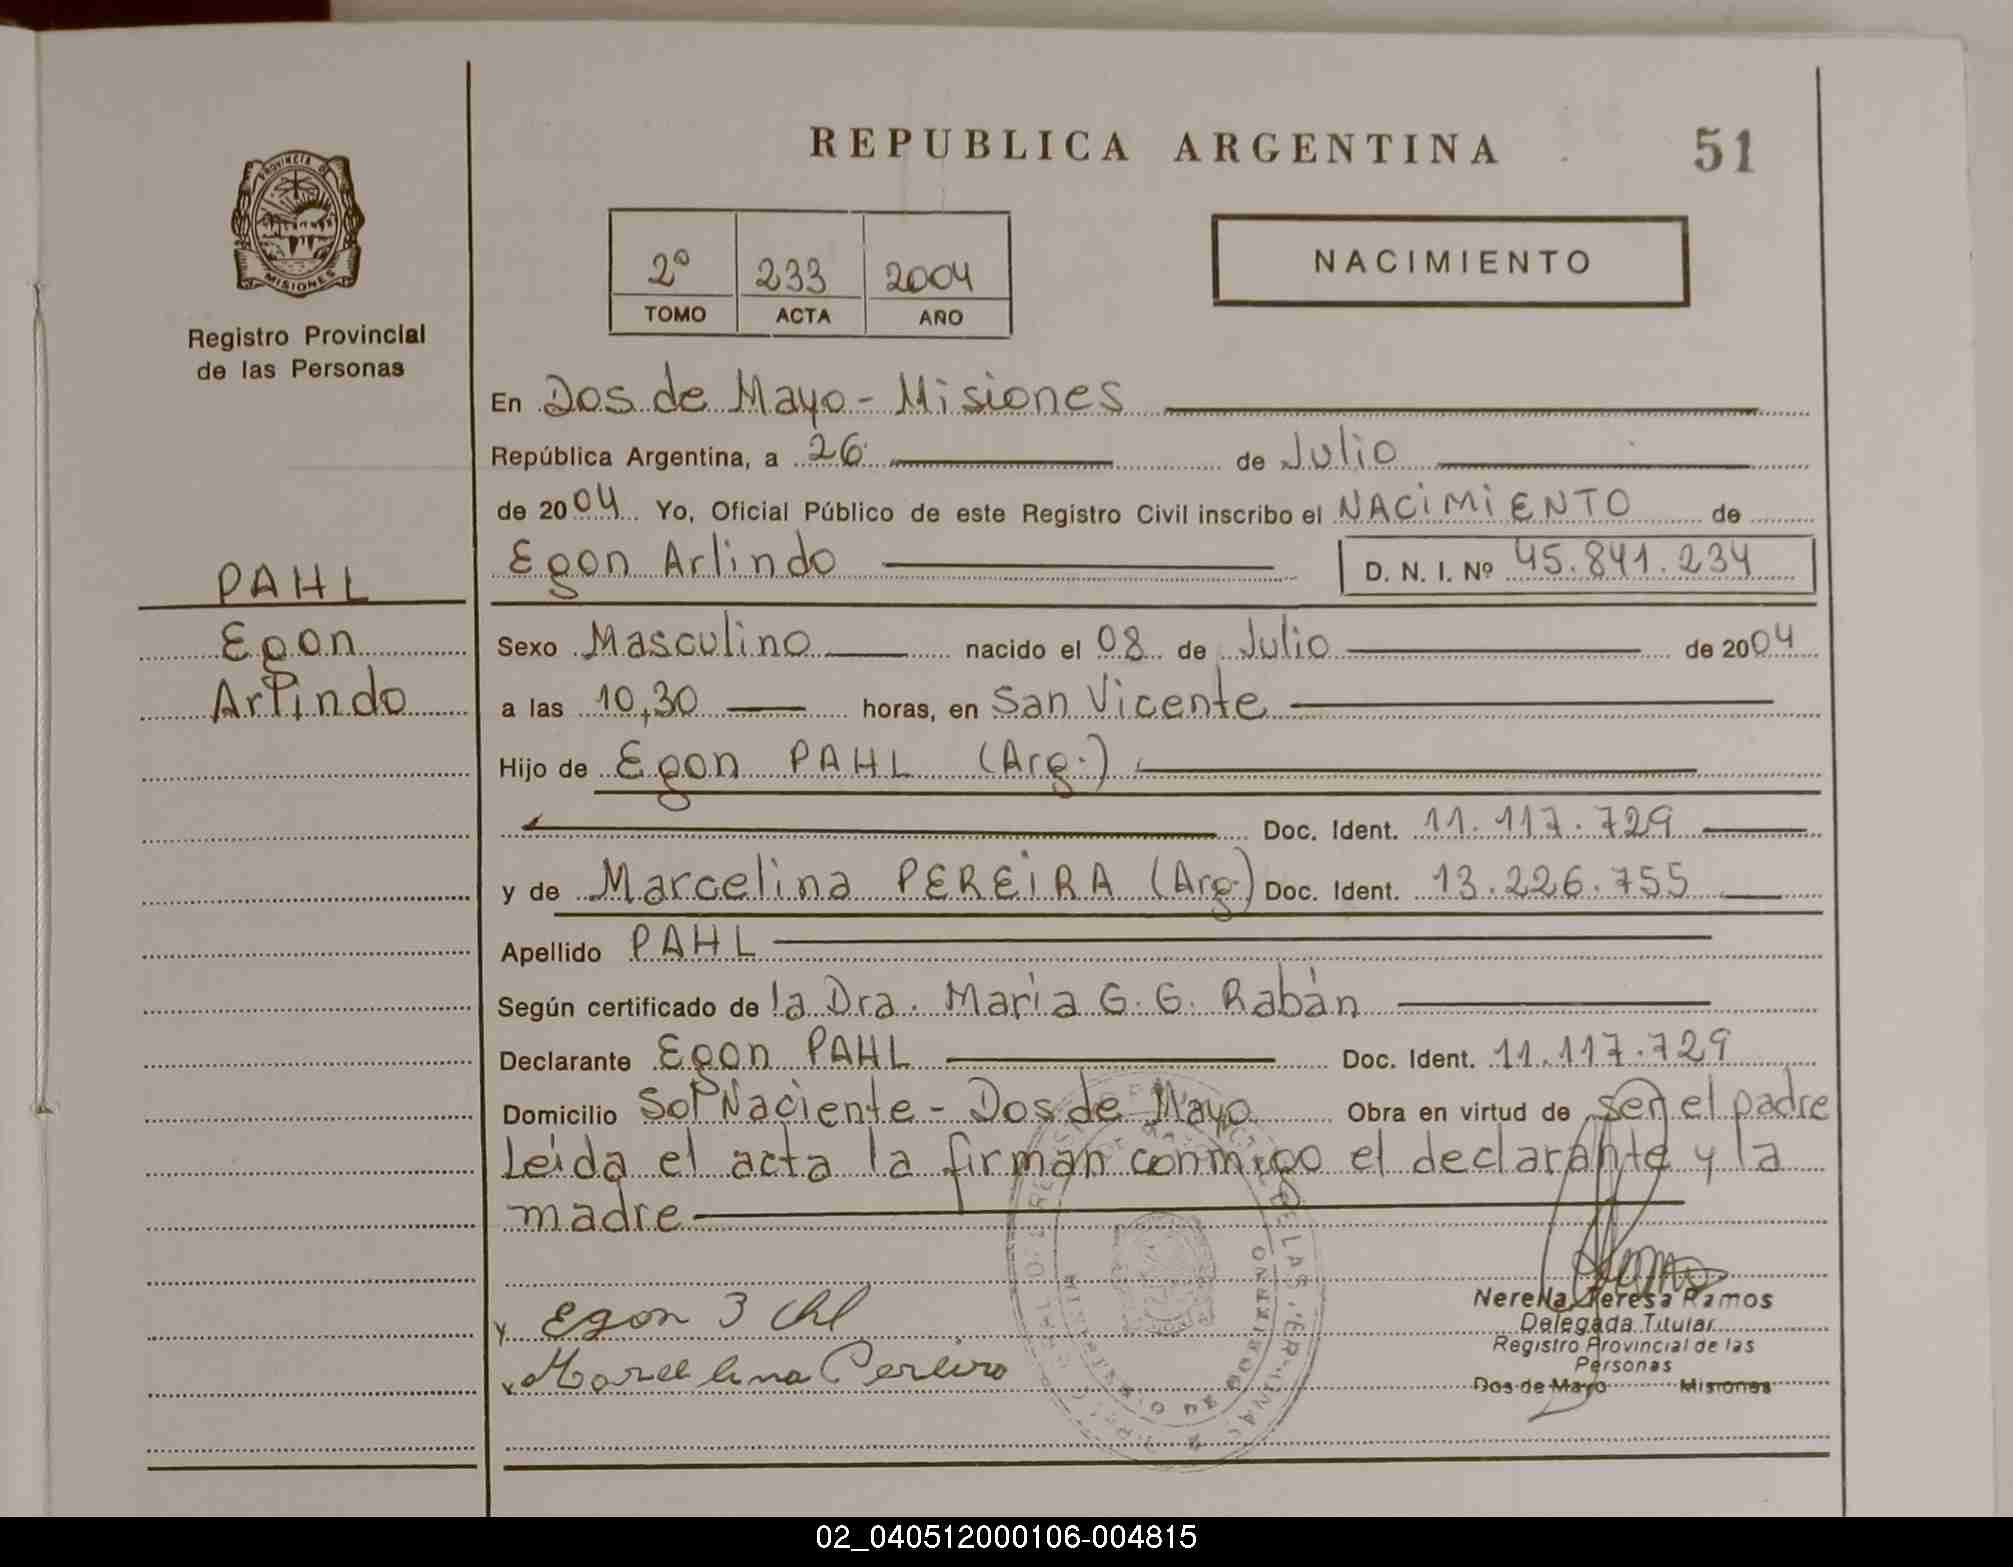 REPUBLICA ARGENTINA
51
PROVINCIA DE
MISIONES
Registro Provincial
de las Personas
2º 233 2004
TOMO ACTA AÑO
NACIMIENTO
En Dos de Mayo - Misiones
República Argentina, a 26 de Julio
de 2004 Yo, Oficial Público de este Registro Civil inscribo el NACIMIENTO de
Egon Arlindo D. N. I. Nº 45.841.234
PAHL
Egon
Arlindo
Sexo Masculino nacido el 08 de Julio de 2004
a las 10,30 horas, en San Vicente
Hijo de Egon PAHL (Arg.)
Doc. Ident. 11.117.729
y de Marcelina PEREIRA (Arg.) Doc. Ident. 13.226.755
Apellido PAHL
Según certificado de la Dra. María G. G. Rabán
Declarante Egon PAHL Doc. Ident. 11.117.729
Domicilio Sol Naciente - Dos de Mayo Obra en virtud de ser el padre
Leida el acta la firman conmigo el declarante y la
madre
Egon
Marcelina Pereira
Nerella Teresa Ramos
Delegada Titular
Registro Provincial de las
Personas
Dos de Mayo Misiones
02_040512000106-004815